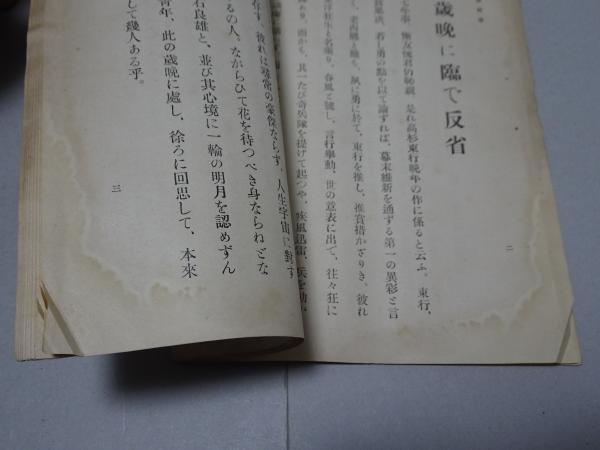 歳晩に臨で反省
是れ高杉東行晩年の作に係ると云ふ。東行、
若し勇の點を以て論ずれば、幕末維新を通ずる第一の異彩と言
夙に勇に於て、東行を推し、推賞措かざりき、彼れ
春風と號し、言行擧動、世の意表に出で、往々狂に
其一たび奇兵隊を提げて起つや、疾風迅雷、
二
彼れは尋常の豪傑ならず、人生宇宙に對す
るの人。ながらひて花を待つべき身ならねどな
石良雄と、並び其心境に一輪の明月を認めずん
青年、此の歳晩に處し、徐ろに回思して、本來
して幾人ある乎。
三